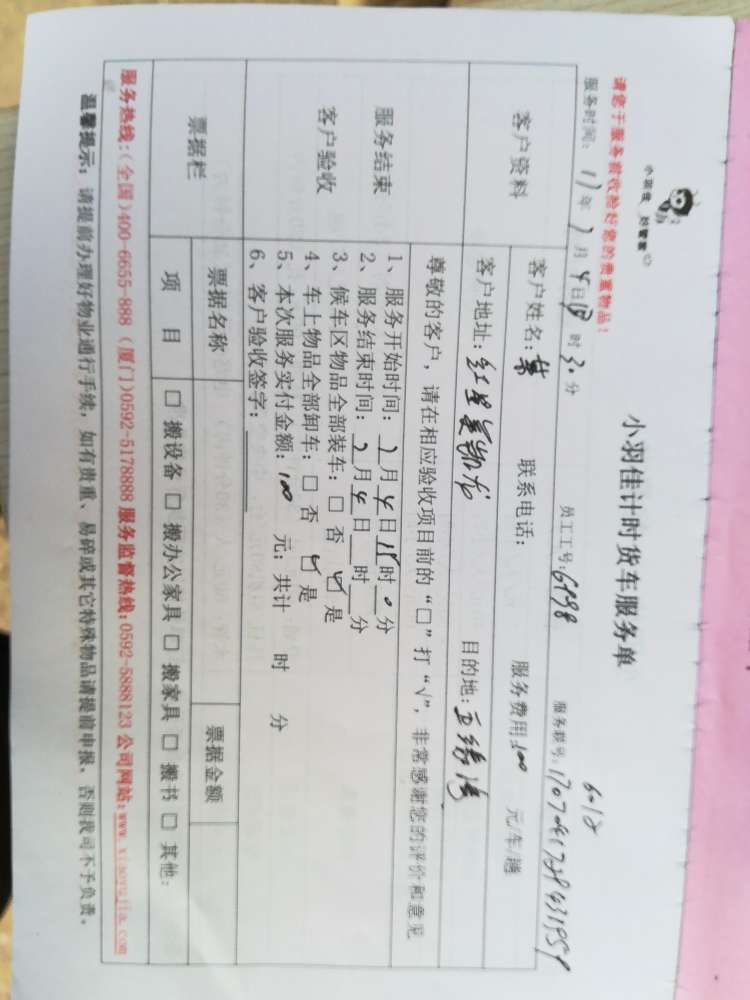 小羽佳 好管家
小羽佳计时货车服务单
请您于服务前收拾好您的贵重物品！
6-18
服务时间：17年7月4日18时30分 员工工号：6498 服务联号：
客户资料
客户姓名：叶 联系电话： 服务费用：100 元/车/趟
客户地址：红星美凯龙 目的地：五缘湾
服务结束
客户验收
尊敬的客户，请在相应验收项目前的“□”打“√”，非常感谢您的评价和意见
1、服务开始时间：7月4日18时0分
2、服务结束时间：7月4日 时 分
3、候车区物品全部装车：□ 否 ☑ 是
4、车上物品全部卸车：□ 否 ☑ 是
5、本次服务实付金额：100 元；共计 时 分
6、客户验收签字：
票据栏
票据名称 票据金额
项 目 □ 搬设备 □ 搬办公家具 □ 搬家具 □ 搬书 □ 其他：
服务热线：(全国)400-6655-888 (厦门)0592-5178888 服务监督热线：0592-5888123 公司网站：www.xiaoyujia.com
温馨提示：请提前办理好物业通行手续，如有贵重、易碎或其它特殊物品请提前申报，否则我司不予负责。